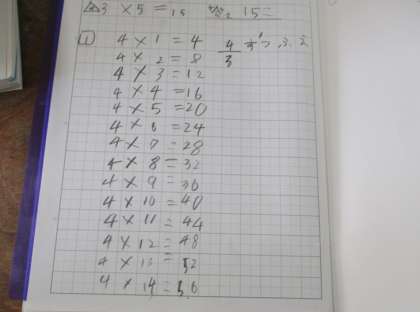 3 × 5 = 15 15 =
1 4 × 1 = 4
4 × 2 = 8
4 × 3 = 12
4 × 4 = 16
4 × 5 = 20
4 × 6 = 24
4 × 7 = 28
4 × 8 = 32
4 × 9 = 36
4 × 10 = 40
4 × 11 = 44
4 × 12 = 48
4 × 13 = 52
4 × 14 = 56
4
3